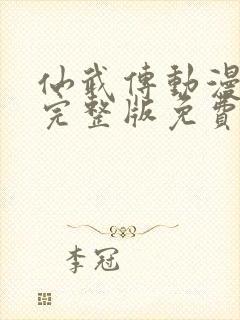 仙武傳動漫
完整版免費
李冠